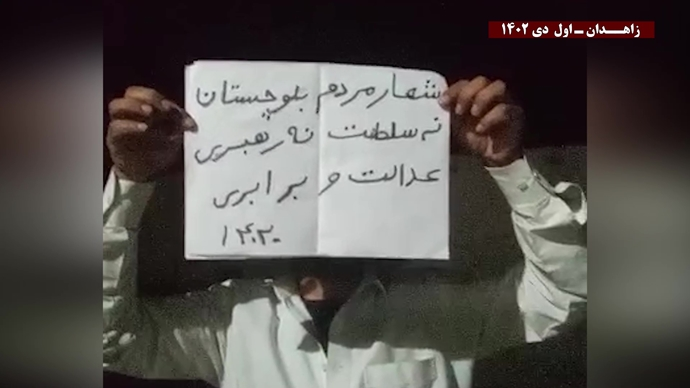 زاهدان ـ اول دی ۱۴۰۲
شعار مردم بلوچستان
نه سلطنت نه رهبری
عدالت و برابری
۱۴۰۲۰